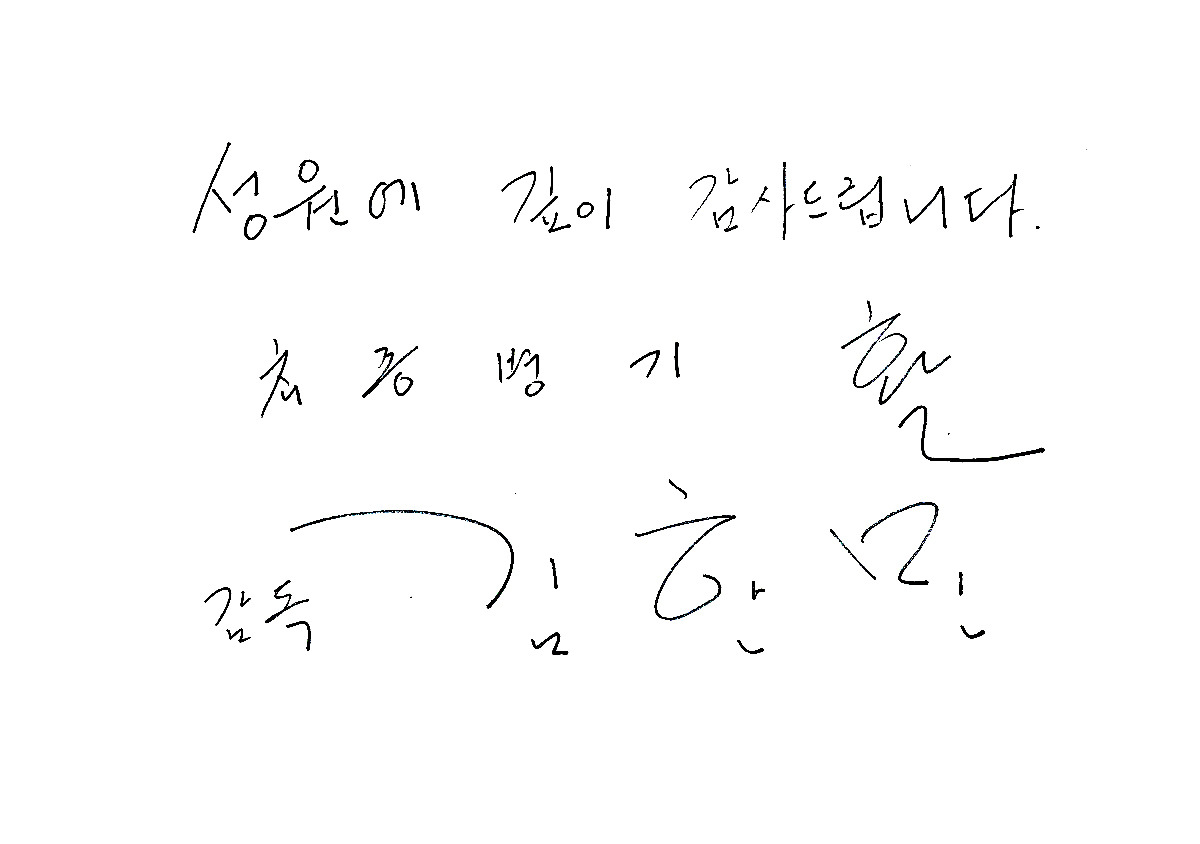 성원에 깊이 감사드립니다.
최종병기 활
감독 김한민